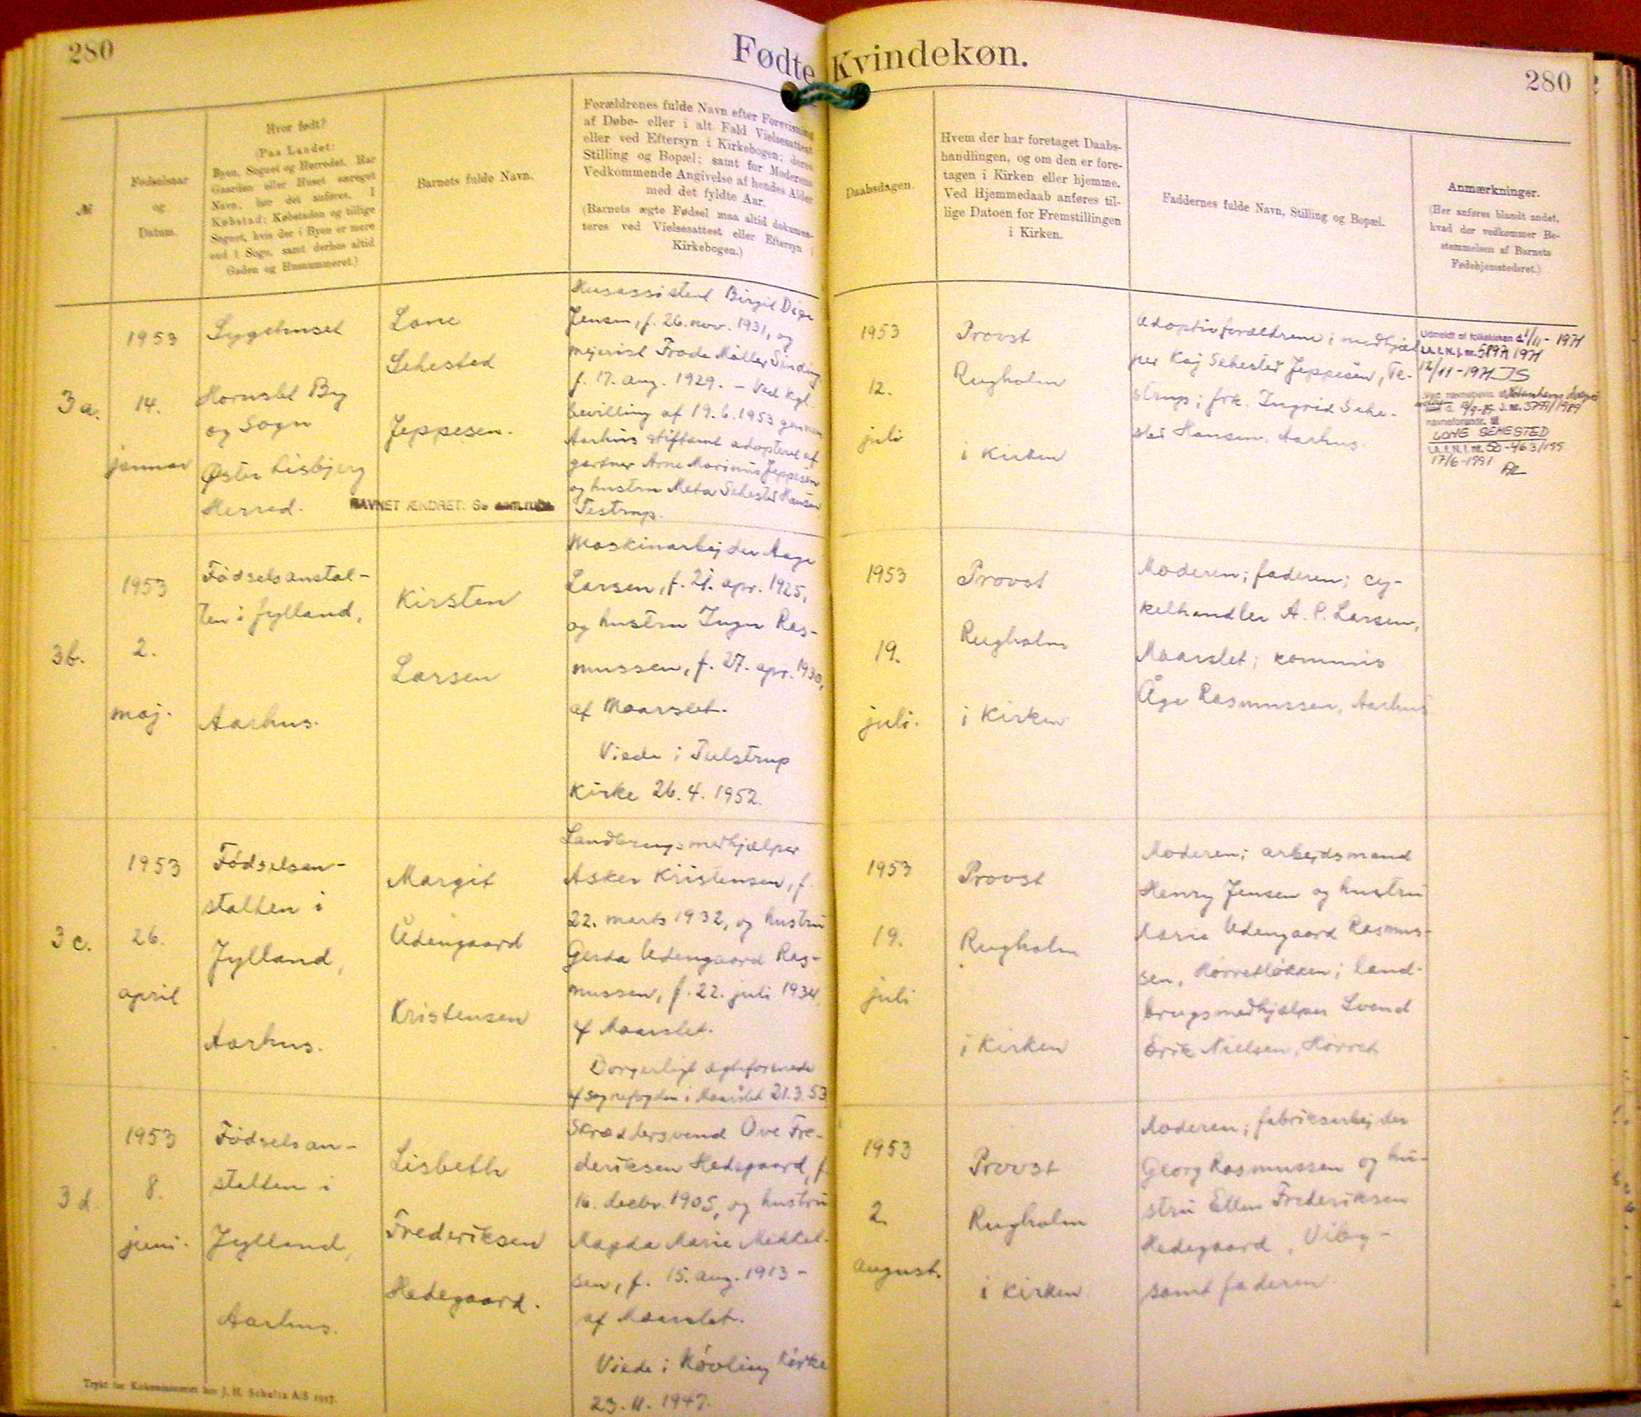 280
Fødte Kvindekøn.
280
№
Fødselsaar
og
Datum.
Hvor født?
(Paa Landet:
Byen, Sognet og Herredet. Har
Gaarden eller Huset særeget
Navn, bør det anføres. I
Købstad: Købstaden og tillige
Sognet, hvis der i Byen er mere
end 1 Sogn, samt derhos altid
Gaden og Husnummeret.)
Barnets fulde Navn.
Forældrenes fulde Navn efter Forevisning
af Døbe- eller i alt Fald Vielsesattest
eller ved Eftersyn i Kirkebogen; deres
Stilling og Bopæl; samt for Moderens
Vedkommende Angivelse af hendes Alder
med det fyldte Aar.
(Barnets ægte Fødsel maa altid dokumen-
teres ved Vielsesattest eller Eftersyn i
Kirkebogen.)
Daabsdagen.
Hvem der har foretaget Daabs-
handlingen, og om den er fore-
tagen i Kirken eller hjemme.
Ved Hjemmedaab anføres til-
lige Datoen for Fremstillingen
i Kirken.
Faddernes fulde Navn, Stilling og Bopæl.
Anmærkninger.
(Her anføres blandt andet,
hvad der vedkommer Be-
stemmelsen af Barnets
Fødehjemstedsret.)
3a.
1953
14.
januar
Sygehuset
Hornslet By
og Sogn
Øster Lisbjerg
Herred.
Lone
Sehested
Jeppesen.
NAVNET ÆNDRET. Se
Husassistent Birgit Dige
Jensen, f. 26. nov. 1931, og
mejerist Frode Møller Sinding
f. 17. aug. 1929. – Ved kgl.
bevilling af 19.6.1953 gennem
Aarhus stiftamt adopteret af
gartner Arne Marinus Jeppesen
og hustru Meta Sehested Hansen
Testrup.
1953
12.
juli
Provst
Rugholm
i Kirken
Adoptivforældrene; medhjæl-
per Kaj Sehested Jeppesen, Te-
strup; frk. Ingrid Sehe-
sted Hansen, Aarhus.
Udmeldt af folkekirken d. 1/11 - 1971
L.a. E. N. J. nr. 5897 1971
12/11-1971 JS
LONE SEHESTED
17/6-1991
3b.
1953
2.
maj.
Fødselsanstal-
ten i Jylland,
Aarhus.
Kirsten
Larsen
Maskinarbejder Aage
Larsen, f. 21. apr. 1925,
og hustru Inger Ras-
mussen, f. 27. apr. 1930,
af Maarslet.
Viede i Tulstrup
Kirke 26.4.1952.
1953
19.
juli.
Provst
Rugholm
i Kirken
Moderen; faderen; cy-
kelhandler A. P. Larsen,
Maarslet; kommis
Åge Rasmussen, Aarhus
3c.
1953
26.
april
Fødselsan-
stalten i
Jylland,
Aarhus.
Margit
Udengaard
Kristensen
Landbrugsmedhjælper
Asker Kristensen, f.
22. marts 1932, og hustru
Gerda Udengaard Ras-
mussen, f. 22. juli 1934,
af Maarslet.
Borgerligt ægteforenede
af sognefogden i Maarslet 21.3.53
1953
19.
juli
Provst
Rugholm
i Kirken
Moderen; arbejdsmand
Henry Jensen og hustru
Marie Udengaard Rasmus-
sen, Hørretløkken; land-
brugsmedhjælper Svend
Erik Nielsen, Hørret
3d.
1953
8.
juni.
Fødselsan-
stalten i
Jylland,
Aarhus.
Lisbeth
Frederiksen
Hedegaard.
Skræddersvend Ove Fre-
deriksen Hedegaard, f.
16. decbr. 1905, og hustru
Magda Marie Mikkel-
sen, f. 15. aug. 1913 –
af Maarslet.
Viede i Kirke
23.11.1947.
1953
2.
august.
Provst
Rugholm
i Kirken
Moderen; fabriksarbejder
Georg Rasmussen og hu-
stru Ellen Frederiksen
Hedegaard, Viby –
samt faderen
Trykt for Kirkeministeriet hos J. H. Schultz A/S 1937.